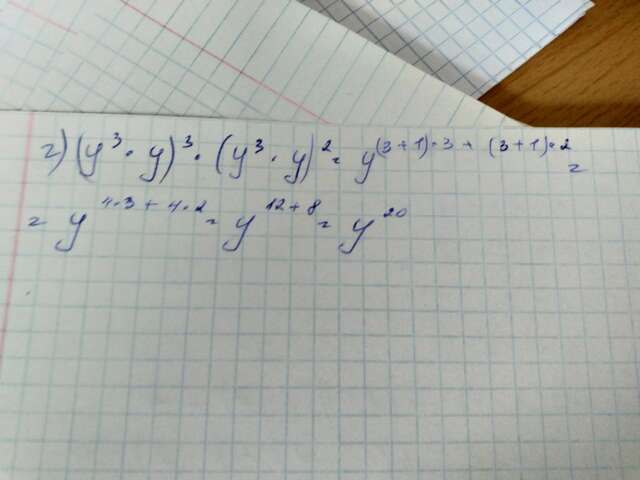 г) (y³ · y)³ · (y³ · y)² = y^(3+1)·3 + (3+1)·2 =
= y^4·3 + 4·2 = y^12+8 = y^20